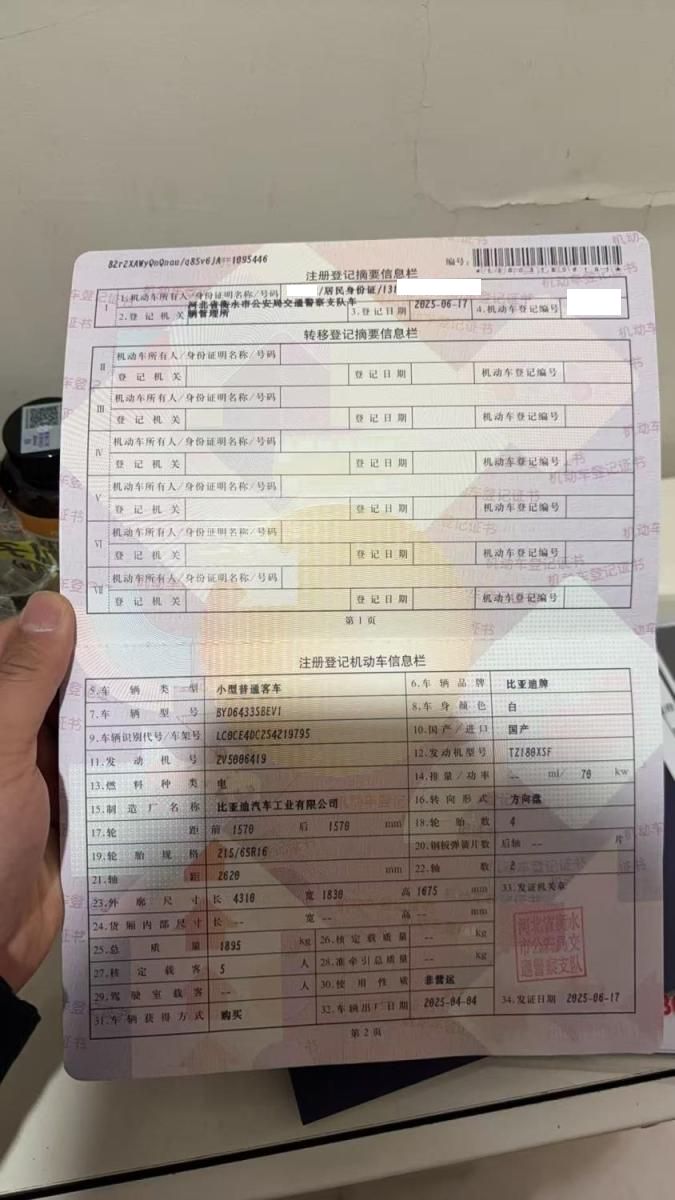 82r2XAWyQnQnau/q85v6jA==1095446
编号:
注册登记摘要信息栏
I
1.机动车所有人/身份证明名称/号码 /居民身份证/131
2.登记机关 河北省衡水市公安局交通警察支队车辆管理所 3.登记日期 2025-06-17 4.机动车登记编号
转移登记摘要信息栏
II
机动车所有人/身份证明名称/号码
登记机关 登记日期 机动车登记编号
III
机动车所有人/身份证明名称/号码
登记机关 登记日期 机动车登记编号
IV
机动车所有人/身份证明名称/号码
登记机关 登记日期 机动车登记编号
V
机动车所有人/身份证明名称/号码
登记机关 登记日期 机动车登记编号
VI
机动车所有人/身份证明名称/号码
登记机关 登记日期 机动车登记编号
VII
机动车所有人/身份证明名称/号码
登记机关 登记日期 机动车登记编号
第1页
注册登记机动车信息栏
5.车辆类型 小型普通客车 6.车辆品牌 比亚迪牌
7.车辆型号 BYD6433SBEV1 8.车身颜色 白
9.车辆识别代号/车架号 LC0CE4DC2S4219795 10.国产/进口 国产
11.发动机号 ZV5006419 12.发动机型号 TZ180XSF
13.燃料种类 电 14.排量/功率 -- ml/ 70 kw
15.制造厂名称 比亚迪汽车工业有限公司 16.转向形式 方向盘
17.轮距 前 1570 后 1570 mm 18.轮胎数 4
19.轮胎规格 215/65R16 20.钢板弹簧片数 后轴 -- 片
21.轴距 2620 mm 22.轴数 2
23.外廓尺寸 长 4310 宽 1830 高 1675 mm 33.发证机关章
24.货厢内部尺寸 长 -- 宽 -- 高 -- mm
25.总质量 1895 kg 26.核定载质量 -- kg
27.核定载客 5 人 28.准牵引总质量 -- kg
29.驾驶室载客 -- 人 30.使用性质 非营运
31.车辆获得方式 购买 32.车辆出厂日期 2025-04-04 34.发证日期 2025-06-17
河北省衡水
市公安局交
通警察支队
第2页
机动车登记证书